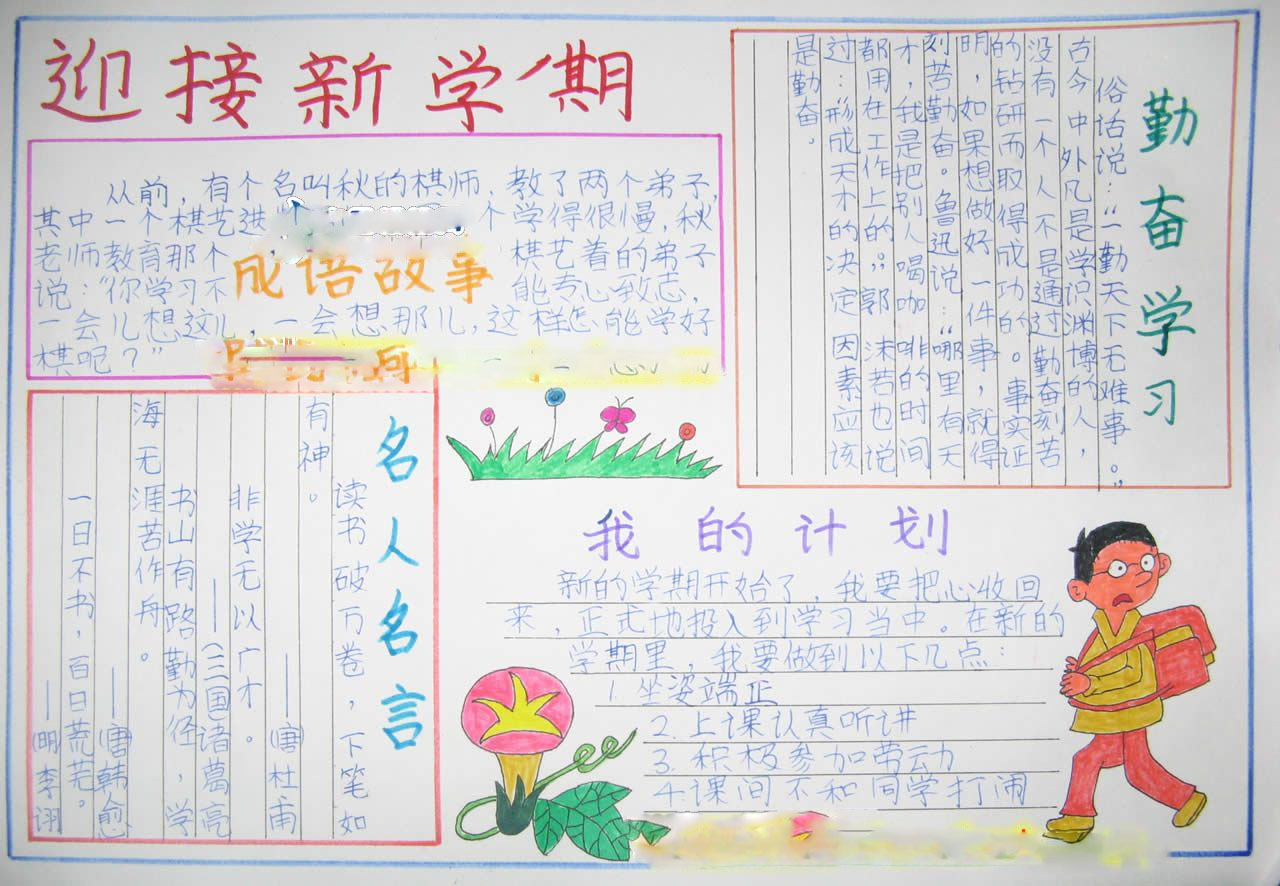 迎接新学期
从前，有个名叫秋的棋师，教了两个弟子，
其中一个棋艺进 个学得很慢，秋
老师教育那个 棋艺着的弟子
说：“你学习不 能专心致志，
一会儿想这儿，一会想那儿，这样怎能学好
棋呢？”
成语故事
勤奋学习
俗话说：“一勤天下无难事。”
古今中外凡是学识渊博的人，
没有一个人不是通过勤奋刻苦
的钻研而取得成功的。事实证
明，如果想做好一件事，就得
刻苦勤奋。鲁迅说：“哪里有天
才，我是把别人喝咖啡的时间
都用在工作上的。”郭沫若也说
过：形成天才的决定因素应该
是勤奋。
名人名言
读书破万卷，下笔如
有神。
——（唐）杜甫
非学无以广才。
——（三国）诸葛亮
书山有路勤为径，学
海无涯苦作舟。
——（唐）韩愈
一日不书，百日荒芜。
——（明）李诩
我的计划
新的学期开始了，我要把心收回
来，正式地投入到学习当中。在新的
学期里，我要做到以下几点：
1.坐姿端正
2.上课认真听讲
3.积极参加劳动
4.课间不和同学打闹